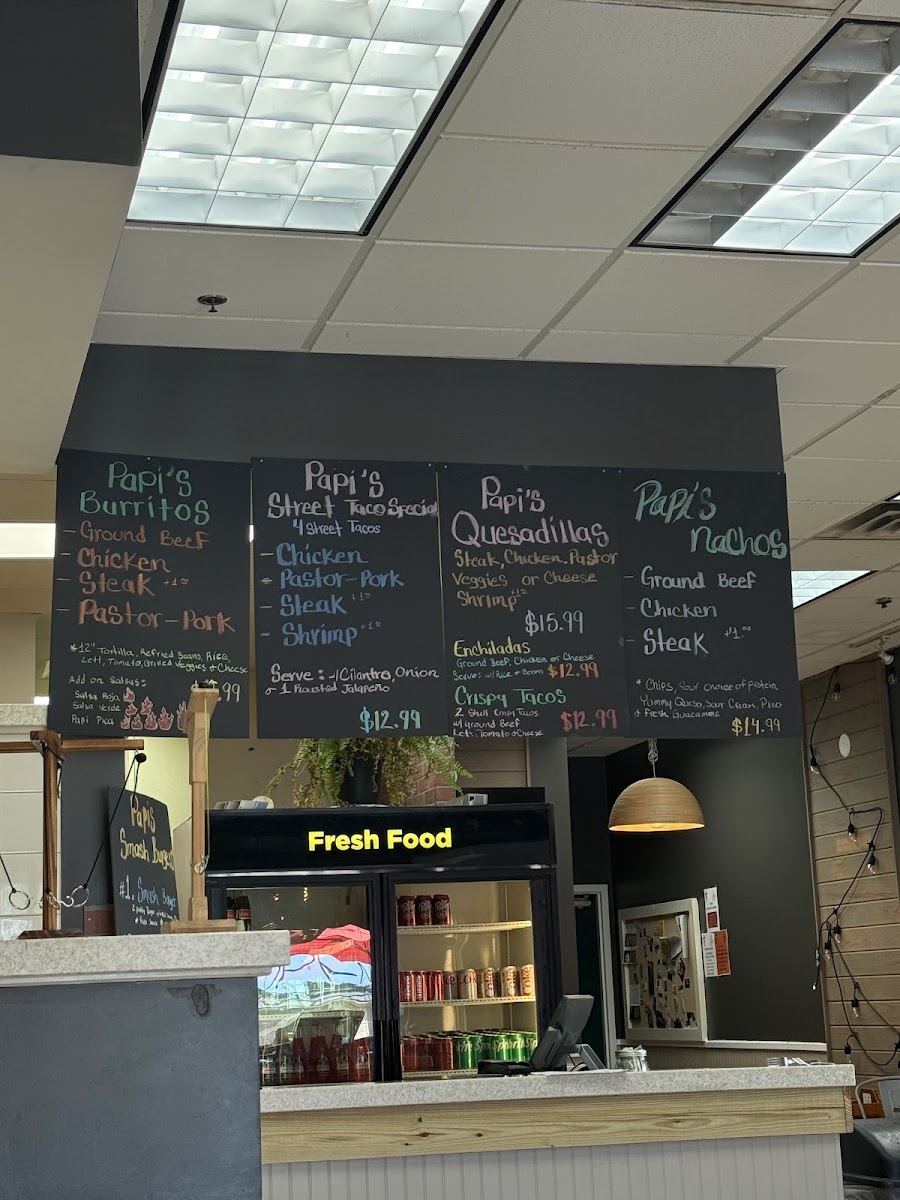 Papi's
Burritos
- Ground Beef
- Chicken
- Steak +1.00
- Pastor-Pork
*12" Tortilla, Refried Beans, Rice,
Lett, Tomato, Grilled Veggies + Cheese
Add on Salsas:
Salsa Roja
Salsa Verde
Papi Pica
99
Papi's
Street Taco Special
4 Street Tacos
- Chicken
- Pastor-Pork
- Steak
- Shrimp
Serve: w/Cilantro, Onion
+ 1 Roasted Jalapeño
$12.99
Papi's
Quesadillas
Steak, Chicken, Pastor
Veggies or Cheese
Shrimp
$15.99
Enchiladas
Ground Beef, Chicken or Cheese
Serve: w/ Rice + Beans $12.99
Crispy Tacos
2 Shell Crispy Tacos
w/ Ground Beef
Lett. Tomato + Cheese
$12.99
Papi's
Nachos
- Ground Beef
- Chicken
- Steak +1.00
* Chips, Your Choice of Protein
Yummy Queso, Sour Cream, Pico
+ Fresh Guacamole
$14.99
Papi's
Smash Burgers
#1. Smash Burger
Fresh Food